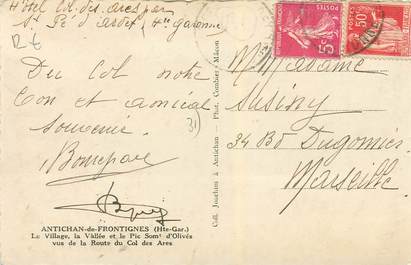 Hôtel Col-des-ares par
St Pé d'ardet, Hte garonne
R6
Du Col notre
bon et amical
souvenir
31
ANTICHAN-de-FRONTIGNES (Hte-Gar.)
Le Village, la Vallée et le Pic Somt d'Olivés
vus de la Route du Col des Ares
Coll. Jouclam à Antichan - Phot. Combier Mâcon
5c
50c
POSTES
M Madame
Susiny
34 BD Dugomier
Marseille